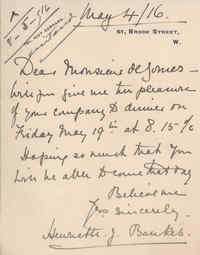 8-5-16
May 4/16.
51, BROOK STREET,
W.
Dear Monsieur de Gomar-
Will you give me the pleasure
of your company to dinner on
Friday May 19th at 8.15 %
Hoping so much that you
will be able to come that day
Believe me
Yrs sincerely.
Henrietta. J. Bankes.